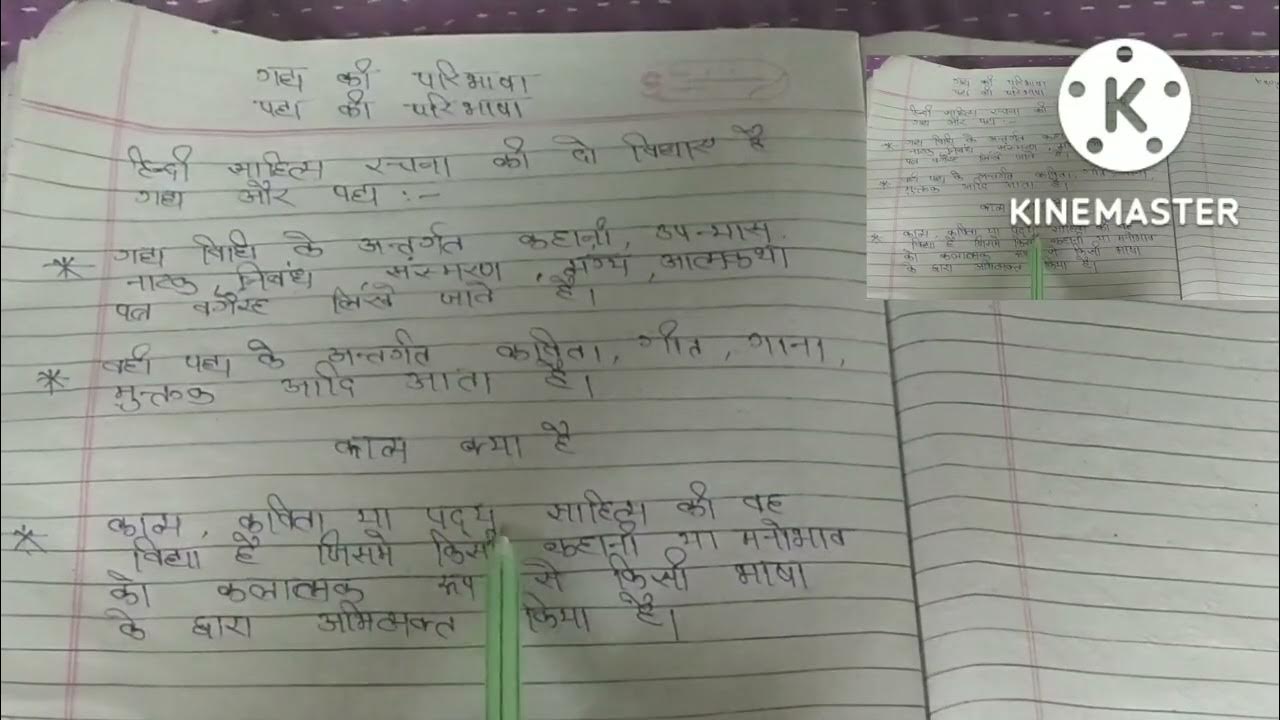 गद्य की परिभाषा
पद्य की परिभाषा
हिन्दी साहित्य रचना की दो विधाए है
गद्य और पद्य :-
* गद्य विधि के अन्तर्गत कहानी, उपन्यास,
नाटक, निबंध, संस्मरण, आत्मकथा
पत्र वगैरह लिखे जाते है।
* वही पद्य के अन्तर्गत कविता, गीत, गाना,
मुक्तक आदि आता है।
काव्य क्या है
* काव्य, कविता या पद्य साहित्य की वह
विद्या है जिसमे किसी कहानी या मनोभाव
को कलात्मक रूप से किसी भाषा
के द्वारा अभिव्यक्त किया है।
K
KINEMASTER